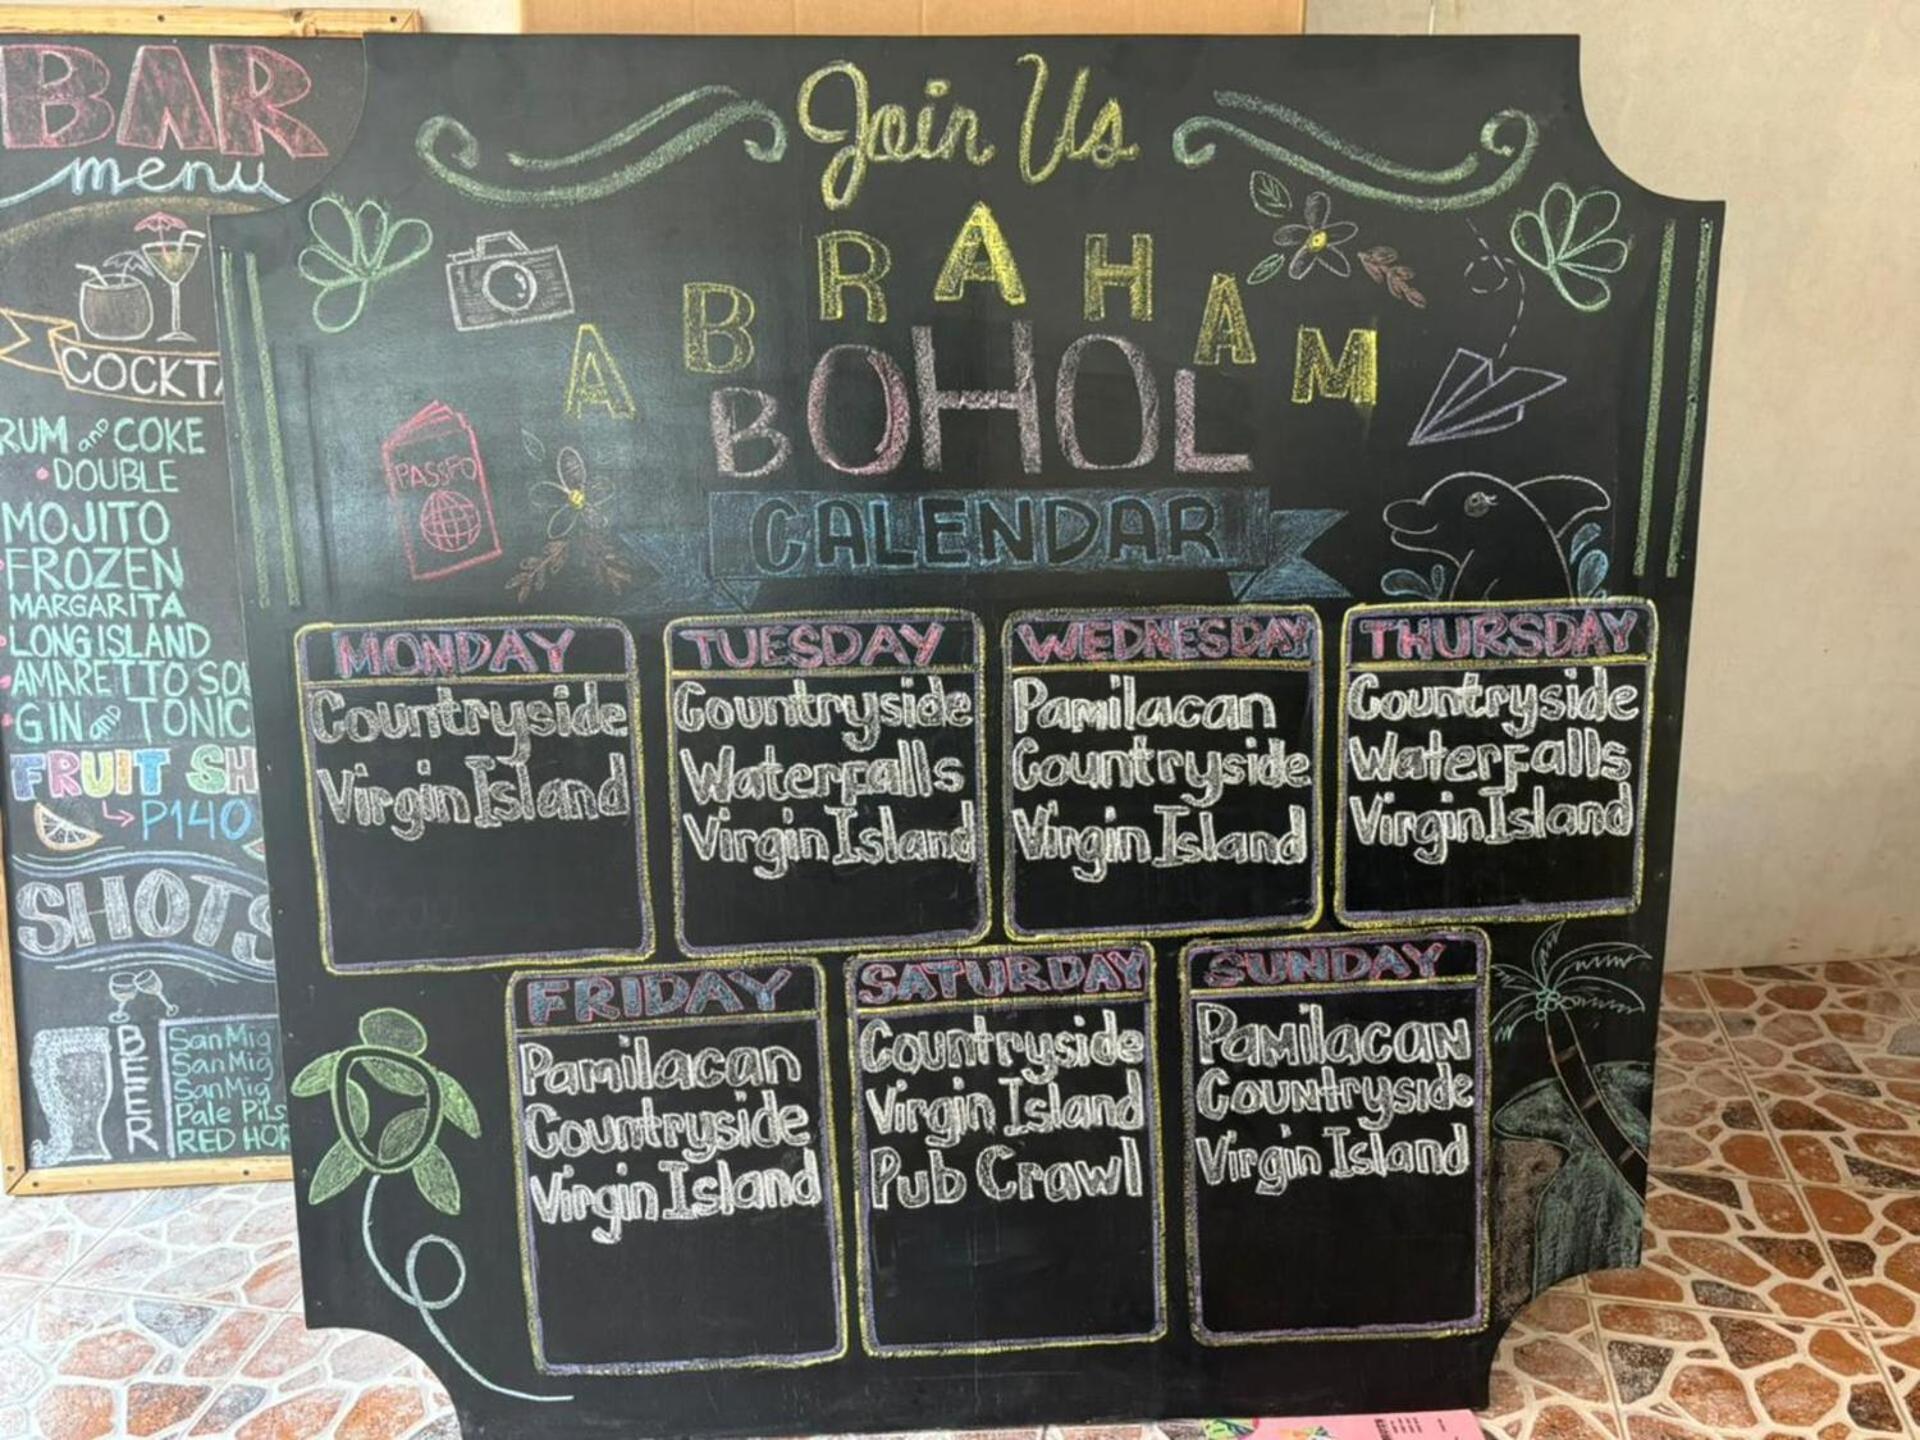 BAR
menu
RUM and COKE
• DOUBLE
MOJITO
FROZEN
MARGARITA
LONG ISLAND
AMARETTO
GIN and TONIC
FRUIT
P140
SHOTS
BEER
San Mig
San Mig
San Mig
Pale Pils
RED
Join Us
ABRAHAM
BOHOL
CALENDAR
MONDAY
Countryside
Virgin Island
TUESDAY
Countryside
Waterfalls
Virgin Island
WEDNESDAY
Pamilacan
Countryside
Virgin Island
THURSDAY
Countryside
Waterfalls
Virgin Island
FRIDAY
Pamilacan
Countryside
Virgin Island
SATURDAY
Countryside
Virgin Island
Pub Crawl
SUNDAY
Pamilacan
Countryside
Virgin Island